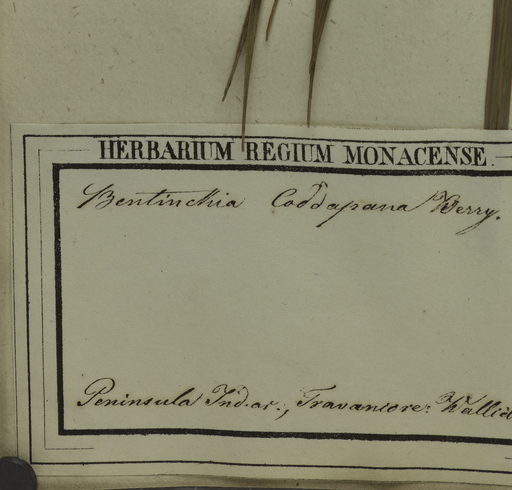 HERBARIUM REGIUM MONACENSE.
Bentinckia Coddapana Berry.
Peninsula Ind. or., Travancore: Wallich